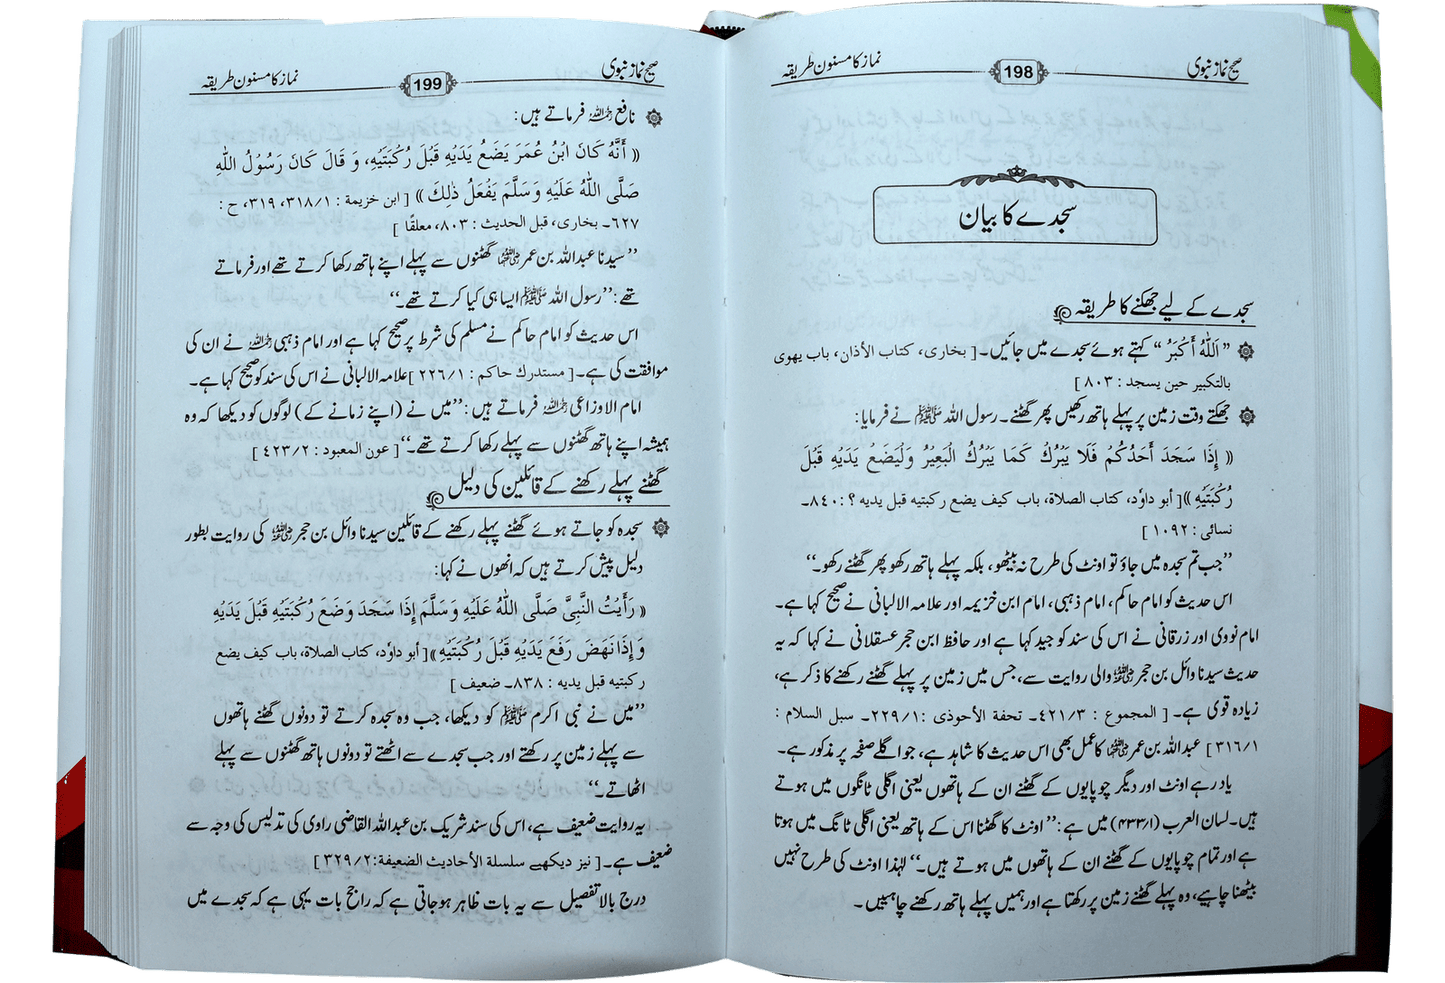 صحیح نماز نبوی 198 نماز کا مسنون طریقہ
سجدے کا بیان
سجدے کے لیے جھکنے کا طریقہ
” اَللّٰہُ أَکْبَرُ “ کہتے ہوئے سجدے میں جائیں۔ [ بخاری، کتاب الأذان، باب یهوی
بالتکبیر حین یسجد : ۸۰۳ ]
جھکتے وقت زمین پر پہلے ہاتھ رکھیں پھر گھٹنے۔ رسول اللہ ﷺ نے فرمایا:
(( إِذَا سَجَدَ أَحَدُكُمْ فَلَا يَبْرُكْ كَمَا يَبْرُكُ الْبَعِيرُ وَلْيَضَعْ يَدَيْهِ قَبْلَ
رُكْبَتَيْهِ )) [ أبو داؤد، کتاب الصلاة، باب کیف یضع رکبتیه قبل یدیه ؟ : ۸۴۰۔
نسائی : ۱۰۹۲ ]
”جب تم سجدہ میں جاؤ تو اونٹ کی طرح نہ بیٹھو، بلکہ پہلے ہاتھ رکھو پھر گھٹنے رکھو۔“
اس حدیث کو امام حاکم، امام ذہبی، امام ابن خزیمہ اور علامہ الالبانی نے صحیح کہا ہے۔
امام نووی اور زرقانی نے اس کی سند کو جید کہا ہے اور حافظ ابن حجر عسقلانی نے کہا کہ یہ
حدیث سیدنا وائل بن حجر رضی اللہ عنہ والی روایت سے، جس میں زمین پر پہلے گھٹنے رکھنے کا ذکر ہے،
زیادہ قوی ہے۔ [ المجموع : ۴۲۱/۳۔ تحفة الأحوذی : ۲۲۹/۱۔ سبل السلام :
۳۱۶/۱ ] عبد اللہ بن عمر رضی اللہ عنہما کا عمل بھی اس حدیث کا شاہد ہے، جو اگلے صفحہ پر مذکور ہے۔
یاد رہے اونٹ اور دیگر چوپایوں کے گھٹنے ان کے ہاتھوں یعنی اگلی ٹانگوں میں ہوتے
ہیں۔ لسان العرب (۴۳۳/۱) میں ہے : ”اونٹ کا گھٹنا اس کے ہاتھ یعنی اگلی ٹانگ میں ہوتا
ہے اور تمام چوپایوں کے گھٹنے ان کے ہاتھوں میں ہوتے ہیں۔“ لہٰذا اونٹ کی طرح نہیں
بیٹھنا چاہیے، وہ پہلے گھٹنے زمین پر رکھتا ہے اور ہمیں پہلے ہاتھ رکھنے چاہئیں۔
صحیح نماز نبوی 199 نماز کا مسنون طریقہ
نافع رحمہ اللہ فرماتے ہیں:
(( أَنَّهُ كَانَ ابْنُ عُمَرَ يَضَعُ يَدَيْهِ قَبْلَ رُكْبَتَيْهِ، وَ قَالَ كَانَ رَسُوْلُ اللّٰهِ
صَلَّى اللّٰهُ عَلَيْهِ وَسَلَّمَ يَفْعَلُ ذٰلِكَ )) [ ابن خزیمة : ۳۱۸/۱، ۳۱۹، ح :
۶۲۷۔ بخاری، قبل الحدیث : ۸۰۳، معلقًا ]
”سیدنا عبد اللہ بن عمر رضی اللہ عنہما گھٹنوں سے پہلے اپنے ہاتھ رکھا کرتے تھے اور فرماتے
تھے : ”رسول اللہ ﷺ ایسا ہی کیا کرتے تھے۔“
اس حدیث کو امام حاکم نے مسلم کی شرط پر صحیح کہا ہے اور امام ذہبی رحمہ اللہ نے ان کی
موافقت کی ہے۔ [ مستدرك حاکم : ۲۲۶/۱ ] علامہ الالبانی نے اس کی سند کو صحیح کہا ہے۔
امام الاوزاعی رحمہ اللہ فرماتے ہیں : ”میں نے (اپنے زمانے کے) لوگوں کو دیکھا کہ وہ
ہمیشہ اپنے ہاتھ گھٹنوں سے پہلے رکھا کرتے تھے۔“ [ عون المعبود : ۴۲۳/۲ ]
گھٹنے پہلے رکھنے کے قائلین کی دلیل
سجدہ کو جاتے ہوئے گھٹنے پہلے رکھنے کے قائلین سیدنا وائل بن حجر رضی اللہ عنہ کی روایت بطور
دلیل پیش کرتے ہیں کہ انھوں نے کہا:
(( رَأَيْتُ النَّبِيَّ صَلَّى اللّٰهُ عَلَيْهِ وَسَلَّمَ إِذَا سَجَدَ وَضَعَ رُكْبَتَيْهِ قَبْلَ يَدَيْهِ
وَ إِذَا نَهَضَ رَفَعَ يَدَيْهِ قَبْلَ رُكْبَتَيْهِ )) [ أبو داؤد، کتاب الصلاة، باب کیف یضع
رکبتیه قبل یدیه : ۸۳۸۔ ضعیف ]
”میں نے نبی اکرم ﷺ کو دیکھا، جب وہ سجدہ کرتے تو دونوں گھٹنے ہاتھوں
سے پہلے زمین پر رکھتے اور جب سجدے سے اٹھتے تو دونوں ہاتھ گھٹنوں سے پہلے
اٹھاتے۔“
یہ روایت ضعیف ہے، اس کی سند شریک بن عبد اللہ القاضی راوی کی تدلیس کی وجہ سے
ضعیف ہے۔ [ نیز دیکھیے سلسلة الأحادیث الضعیفة : ۳۲۹/۲ ]
درج بالا تفصیل سے یہ بات ظاہر ہو جاتی ہے کہ راجح بات یہی ہے کہ سجدے میں